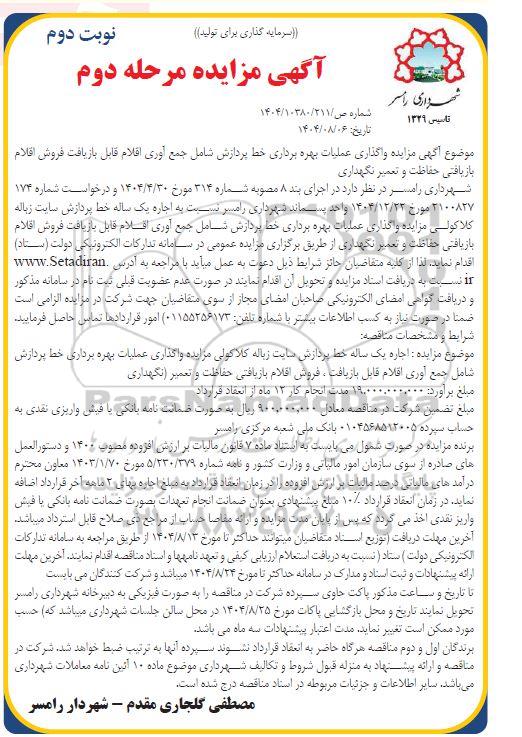 ((سرمایه گذاری برای تولید))
نوبت دوم
آگهی مزایده مرحله دوم
شهرداری رامسر
تاسیس ۱۳۲۹
شماره ص/۱۰۳۸۰/۲۱۱/۱۴۰۴
تاریخ: ۱۴۰۴/۰۸/۰۶
موضوع آگهی مزایده واگذاری عملیات بهره برداری خط پردازش شامل جمع آوری اقلام قابل بازیافت فروش اقلام
بازیافتی حفاظت و تعمیر نگهداری
شهرداری رامسر در نظر دارد در اجرای بند ۸ مصوبه شماره ۳۱۴ مورخ ۱۴۰۴/۴/۳۰ و درخواست شماره ۱۷۴
۲۱۰۰۸۲۷ مورخ ۱۴۰۴/۱۲/۲۲ واحد پسماند شهرداری رامسر نسبت به اجاره یک ساله خط پردازش سایت زباله
کلاکولی مزایده واگذاری عملیات بهره برداری خط پردازش شامل جمع آوری اقلام قابل بازیافت فروش اقلام
بازیافتی حفاظت و تعمیر نگهداری از طریق برگزاری مزایده عمومی در سامانه تدارکات الکترونیکی دولت (ستاد)
اقدام نماید. لذا از کلیه متقاضیان حائز شرایط ذیل دعوت به عمل میآید با مراجعه به آدرس www.Setadiran.
ir نسبت به دریافت اسناد مزایده و تحویل آن اقدام نمایند در صورت عدم عضویت قبلی ثبت نام در سامانه مذکور
و دریافت گواهی امضای الکترونیکی صاحبان امضای مجاز از سوی متقاضیان جهت شرکت در مزایده الزامی است
ضمنا در صورت نیاز به کسب اطلاعات بیشتر با شماره تلفن: ۰۱۱۵۵۲۵۶۱۷۳) امور قراردادها تماس حاصل فرمایید.
شرایط و مشخصات مناقصه:
موضوع مزایده : اجاره یک ساله خط پردازش سایت زباله کلاکولی مزایده واگذاری عملیات بهره برداری خط پردازش
شامل جمع آوری اقلام قابل بازیافت ، فروش اقلام بازیافتی حفاظت و تعمیر (نگهداری
مبلغ برآورد: ۱۹.۰۰۰.۰۰۰.۰۰۰ مدت انجام کار ۱۲ ماه از انعقاد قرارداد
مبلغ تضمین شرکت در مناقصه معادل ۹۰۰.۰۰۰.۰۰۰ ریال به صورت ضمانت نامه بانکی یا فیش واریزی نقدی به
حساب سپرده ۰۱۰۴۵۶۸۵۱۲۰۰۵ بانک ملی شعبه مرکزی رامسر
برنده مزایده در صورت شمول می بایست به استناد ماده ۷ قانون مالیات بر ارزش افزوده مصوب ۱۴۰۰ و دستورالعمل
های صادره از سوی سازمان امور مالیاتی و وزارت کشور و نامه شماره ۵/۲۳۰/۳۷۹ مورخ ۱۴۰۳/۱/۷۰ معاون محترم
درآمد های مالیاتی درصد مالیات بر ارزش افزوده را در زمان انعقاد قرارداد به مبلغ اجاره بهای ۲ ماهه آخر قرارداد اضافه
نماید. در زمان انعقاد قرارداد ۱۰٪ مبلغ پیشنهادی بعنوان ضمانت انجام تعهدات بصورت ضمانت نامه بانکی یا فیش
واریز نقدی اخذ می گردد که پس از پایان مدت مزایده و ارائه مفاصا حساب از مراجع ذی صلاح قابل استرداد میباشد.
آخرین مهلت دریافت (توزیع اسناد متقاضیان میتوانند حداکثر تا مورخ ۱۴۰۴/۸/۱۳ از طریق مراجعه به سامانه تدارکات
الکترونیکی دولت ) ستاد ( نسبت به دریافت استعلام ارزیابی کیفی و تعهد نامهها و اسناد مناقصه اقدام نمایند. آخرین مهلت
ارائه پیشنهادات و ثبت اسناد و مدارک در سامانه حداکثر تا مورخ ۱۴۰۴/۸/۲۴ میباشد و شرکت کنندگان می بایست
تا تاریخ و ساعت مذکور پاکت حاوی سپرده شرکت در مناقصه را به صورت فیزیکی به دبیرخانه شهرداری رامسر
تحویل نمایند تاریخ و محل بازگشایی پاکات مورخ ۱۴۰۴/۸/۲۵ در محل سالن جلسات شهرداری میباشد که) حسب
مورد ممکن است تغییر نماید. مدت اعتبار پیشنهادات سه ماه می باشد.
برندگان اول و دوم مناقصه هرگاه حاضر به انعقاد قرارداد نشوند سپرده آنها به ترتیب ضبط خواهد شد. شرکت در
مناقصه و ارائه پیشنهاد به منزله قبول شروط و تکالیف شهرداری موضوع ماده ۱۰ آئین نامه معاملات شهرداری
می‌باشد. سایر اطلاعات و جزئیات مربوطه در اسناد مناقصه درج شده است.
مصطفی گلجاری مقدم – شهردار رامسر